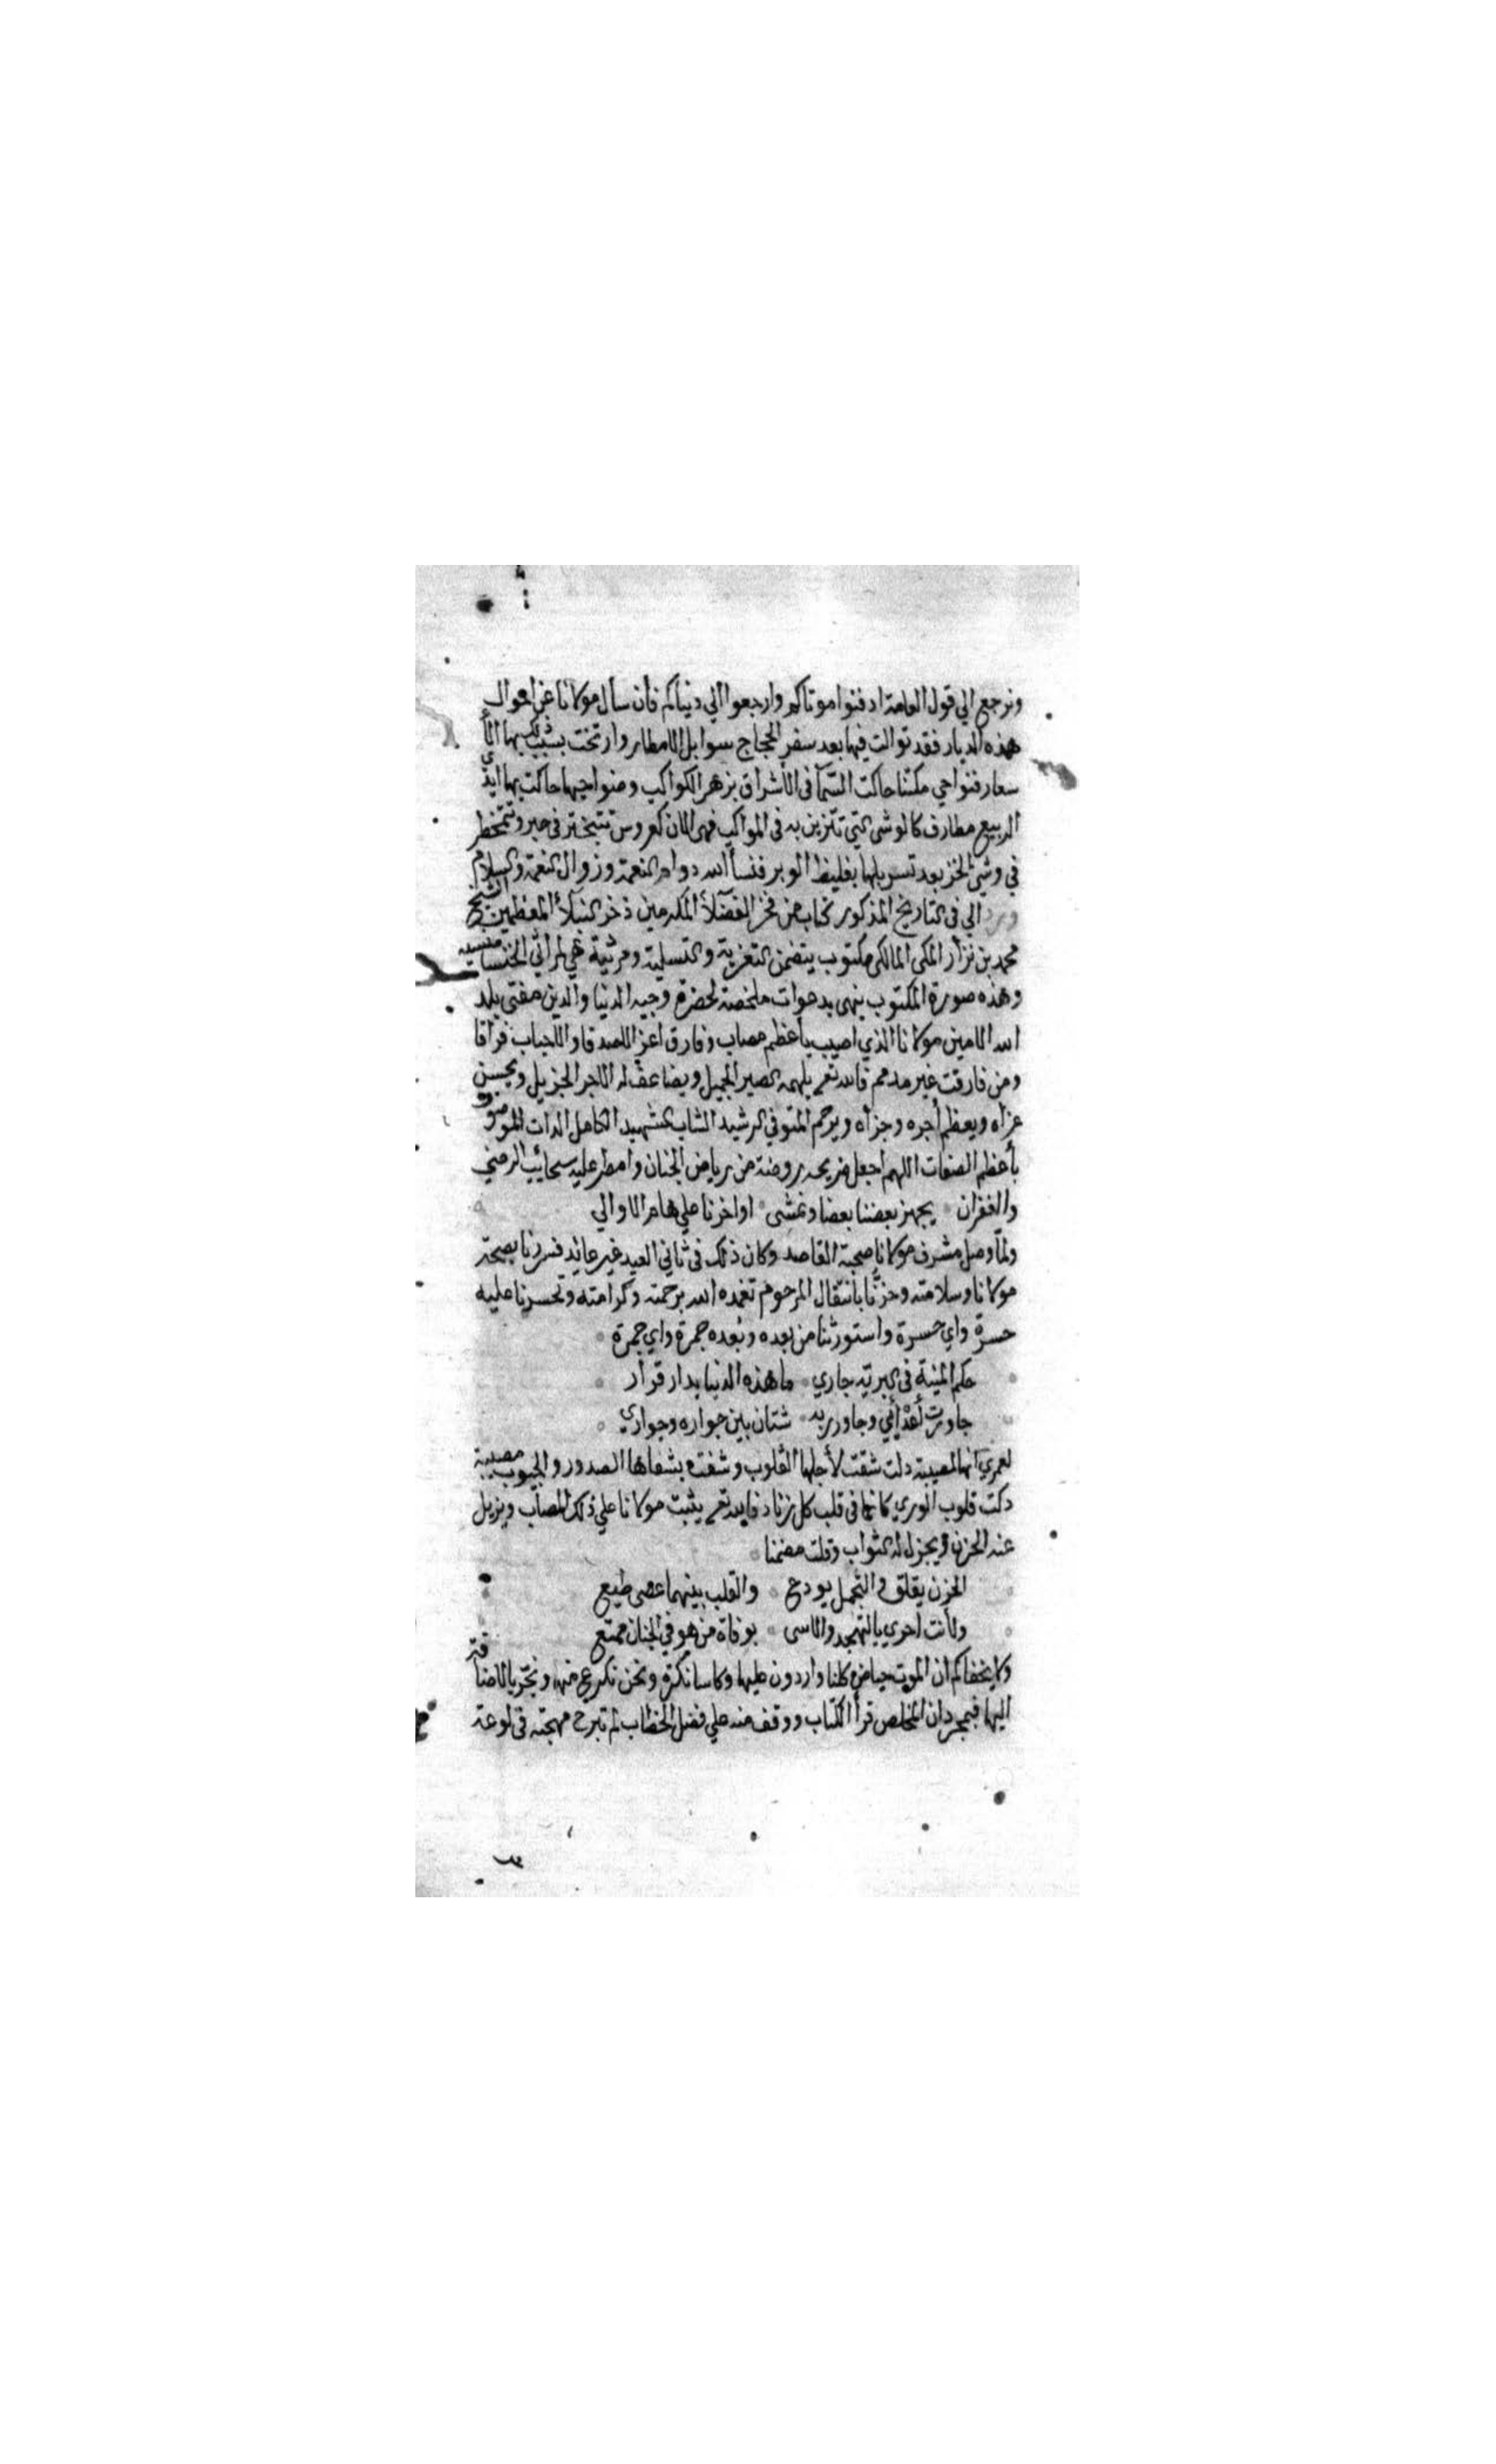 ونرجع الي قول العامة ادفنوا موتاكم وارجعوا الي دنياكم فان سأل مولانا عن احوال
هذه الديار فقد توالت فيها بعد سفر الحجاج سوابل الامطار وارتخت بسبب ذلك بها الأ
سعار فنواحي مكتنا حاكت السمآ في الأشراق بزهر الكواكب وضواحيها حاكت بها ايدي
الربيع مطارف كالوشي التي تتزين به في المواكب فهي الان كعروس تتبختر في حبر وتتمخطر
في وشي الخز بعد تسربلها بغليظ الوبر فنسأ الله دوام النعمة وزوال النقمة والسلام
ورد الي في التاريخ المذكور كتاب من فخر الفضلآ المكرمين ذخر النبلآ المعظمين الشيخ
محمد بن نزار المكي المالكي مكتوب يتضمن التعزية والتسلية ومرثية هي لمراثي الخنسا منسية
وهذه صورة المكتوب ينهي بدعوات ملخصة لحضرة وجيه الدنيا والدين مفتي بلد
الله الامين مولانا الذي اصيب بأعظم مصاب وفارق اعز الاصدقا والاحباب فراقا
ومن فارقت غير مذمم فالله تعم يلهمه الصبر الجميل ويضاعف له الاجر الجزيل ويحسن
عزاه ويعظم أجره وجزأه ويرحم المتوفي الرشيد الشاب الشهيد الكامل الذات الموصوف
بأعظم الصفات اللهم اجعل ضريحه روضة من رياض الجنان وامطر عليه سحائب الرضي
والغفران يجهز بعضنا بعضا ونمشي اواخرنا علي هام الاوالي
ولما وصل مشرف مولانا صحبة القاصد وكان ذلك في ثاني العيد غير عائد فسررنا بصحة
مولانا وسلامته وحزنا بانتقال المرحوم تغمده الله برحمته وكرامته وتحسرنا عليه
حسرة واي حسرة واستورثنا من بعده وبُعده جمرة واي جمرة
حكم المنية في البرية جاري ما هذه الدنيا بدار قرار
جاورت أعدائي وجاور ربه شتان بين جواره وجواري
لعمري انها لمصيبة دلت شقت لأجلها القلوب وشفت بشفاها الصدور والجيوب مصيبة
دكت قلوب الوري كانما في قلب كل زناد فالله تعم يثبت مولانا علي ذلك المصاب ويزيل
عنه الحزن ويجزل له الثواب وقلت مضمنا
الحزن يقلق والتجمل يودع والقلب بينهما عصي طيع
ولأنت احري بالتهجد والاسي بوفاة من هو في الجنان ممتع
ولا يخفاكم ان الموت حياض كلنا واردون عليها وكاسا نكره ونحن نكرع منها ونتجر بالاضافة
اليها فبمجرد ان المخلص قرأ الكتاب ووقف منه علي فضل الخطاب لم تبرح مهجته في لوعة